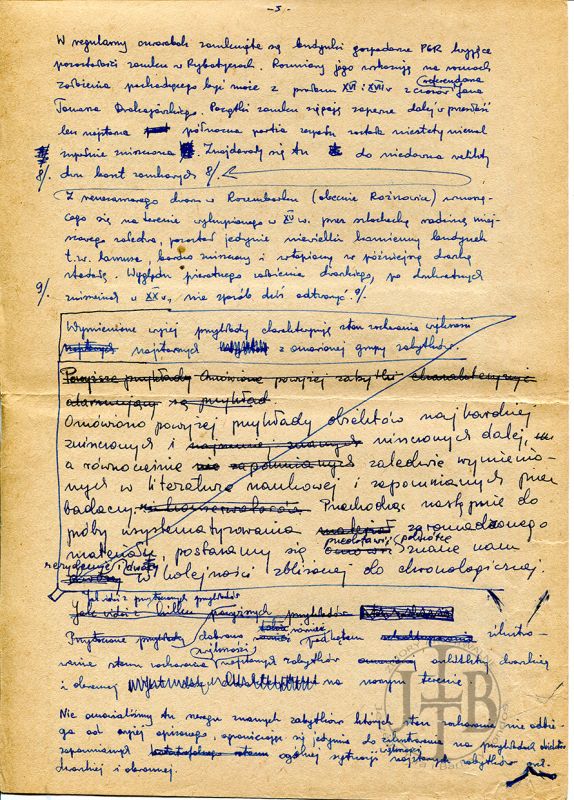 - 3 -
W regularny czworobok zamknięte są budynki gospodarcze PGR kryjące
pozostałości zamku w Rybotyczach. Rozmiary jego wskazują na
założenia pochodzącego być może z przełomu XVI i XVII w z czasów Jana
Tomasza Drohojowskiego. Początki zamku sięgają zapewne dalej w przeszłość
lecz najstarsza północna partia została niestety niemal
zupełnie zniszczona. Znajdowały się tu do niedawna relikty
8/. dwu baszt zamkowych 8/.
Z renesansowego dworu w Rozembarku (obecnie Rożnowice) wznoszą-
cego się na terenie wykupionego w XV w. przez szlachecką rodzinę miej-
scowego sołectwa, pozostał jedynie niewielki kamienny budynek
t.zw. lamusa, bardzo zniszczony i wtopiony w późniejszą
stodołę. Wyglądu pierwotnego założenia dworskiego, po dwukrotnych
9/. zmianach w XX w, nie sposób dziś odtworzyć. 9/.
Wymienione wyżej przykłady charakteryzują stan zachowania większości
najstarszych z omawianej grupy zabytków.
Powyższe przykłady Omówione powyżej zabytki charakteryzuje
alarmujący są przykład
Omówiono powyżej przykłady obiektów najbardziej
zniszczonych i niszczonych dalej,
a równocześnie zapomnianych zaledwie wymienio-
nych w literaturze naukowej i zapomnianych przez
badaczy i konserwatorów. Przechodząc następnie do
próby usystematyzowania materiał zgromadzonego
materiału, postaramy się przedstawić pokrótce omówić znane nam
rezydencje i dwory w kolejności zbliżonej do chronologicznej.
Jak widać z przytoczonych przykładów
Jak widać z kilku powyższych przykładów
Przytoczone przykłady dobrano pod kątem zilustro-
wania stanu zachowania większości najstarszych zabytków architektury dworskiej
i obronnej na naszym terenie
Nie omawialiśmy tu szeregu znanych zabytków których stan zachowania nie odbie-
ga od wyżej opisanego, ograniczając się jedynie do zilustrowania na przykładach obiektów
zapomnianych ogólnej sytuacji większości najstarszych zabytków arch.
dworskiej i obronnej.